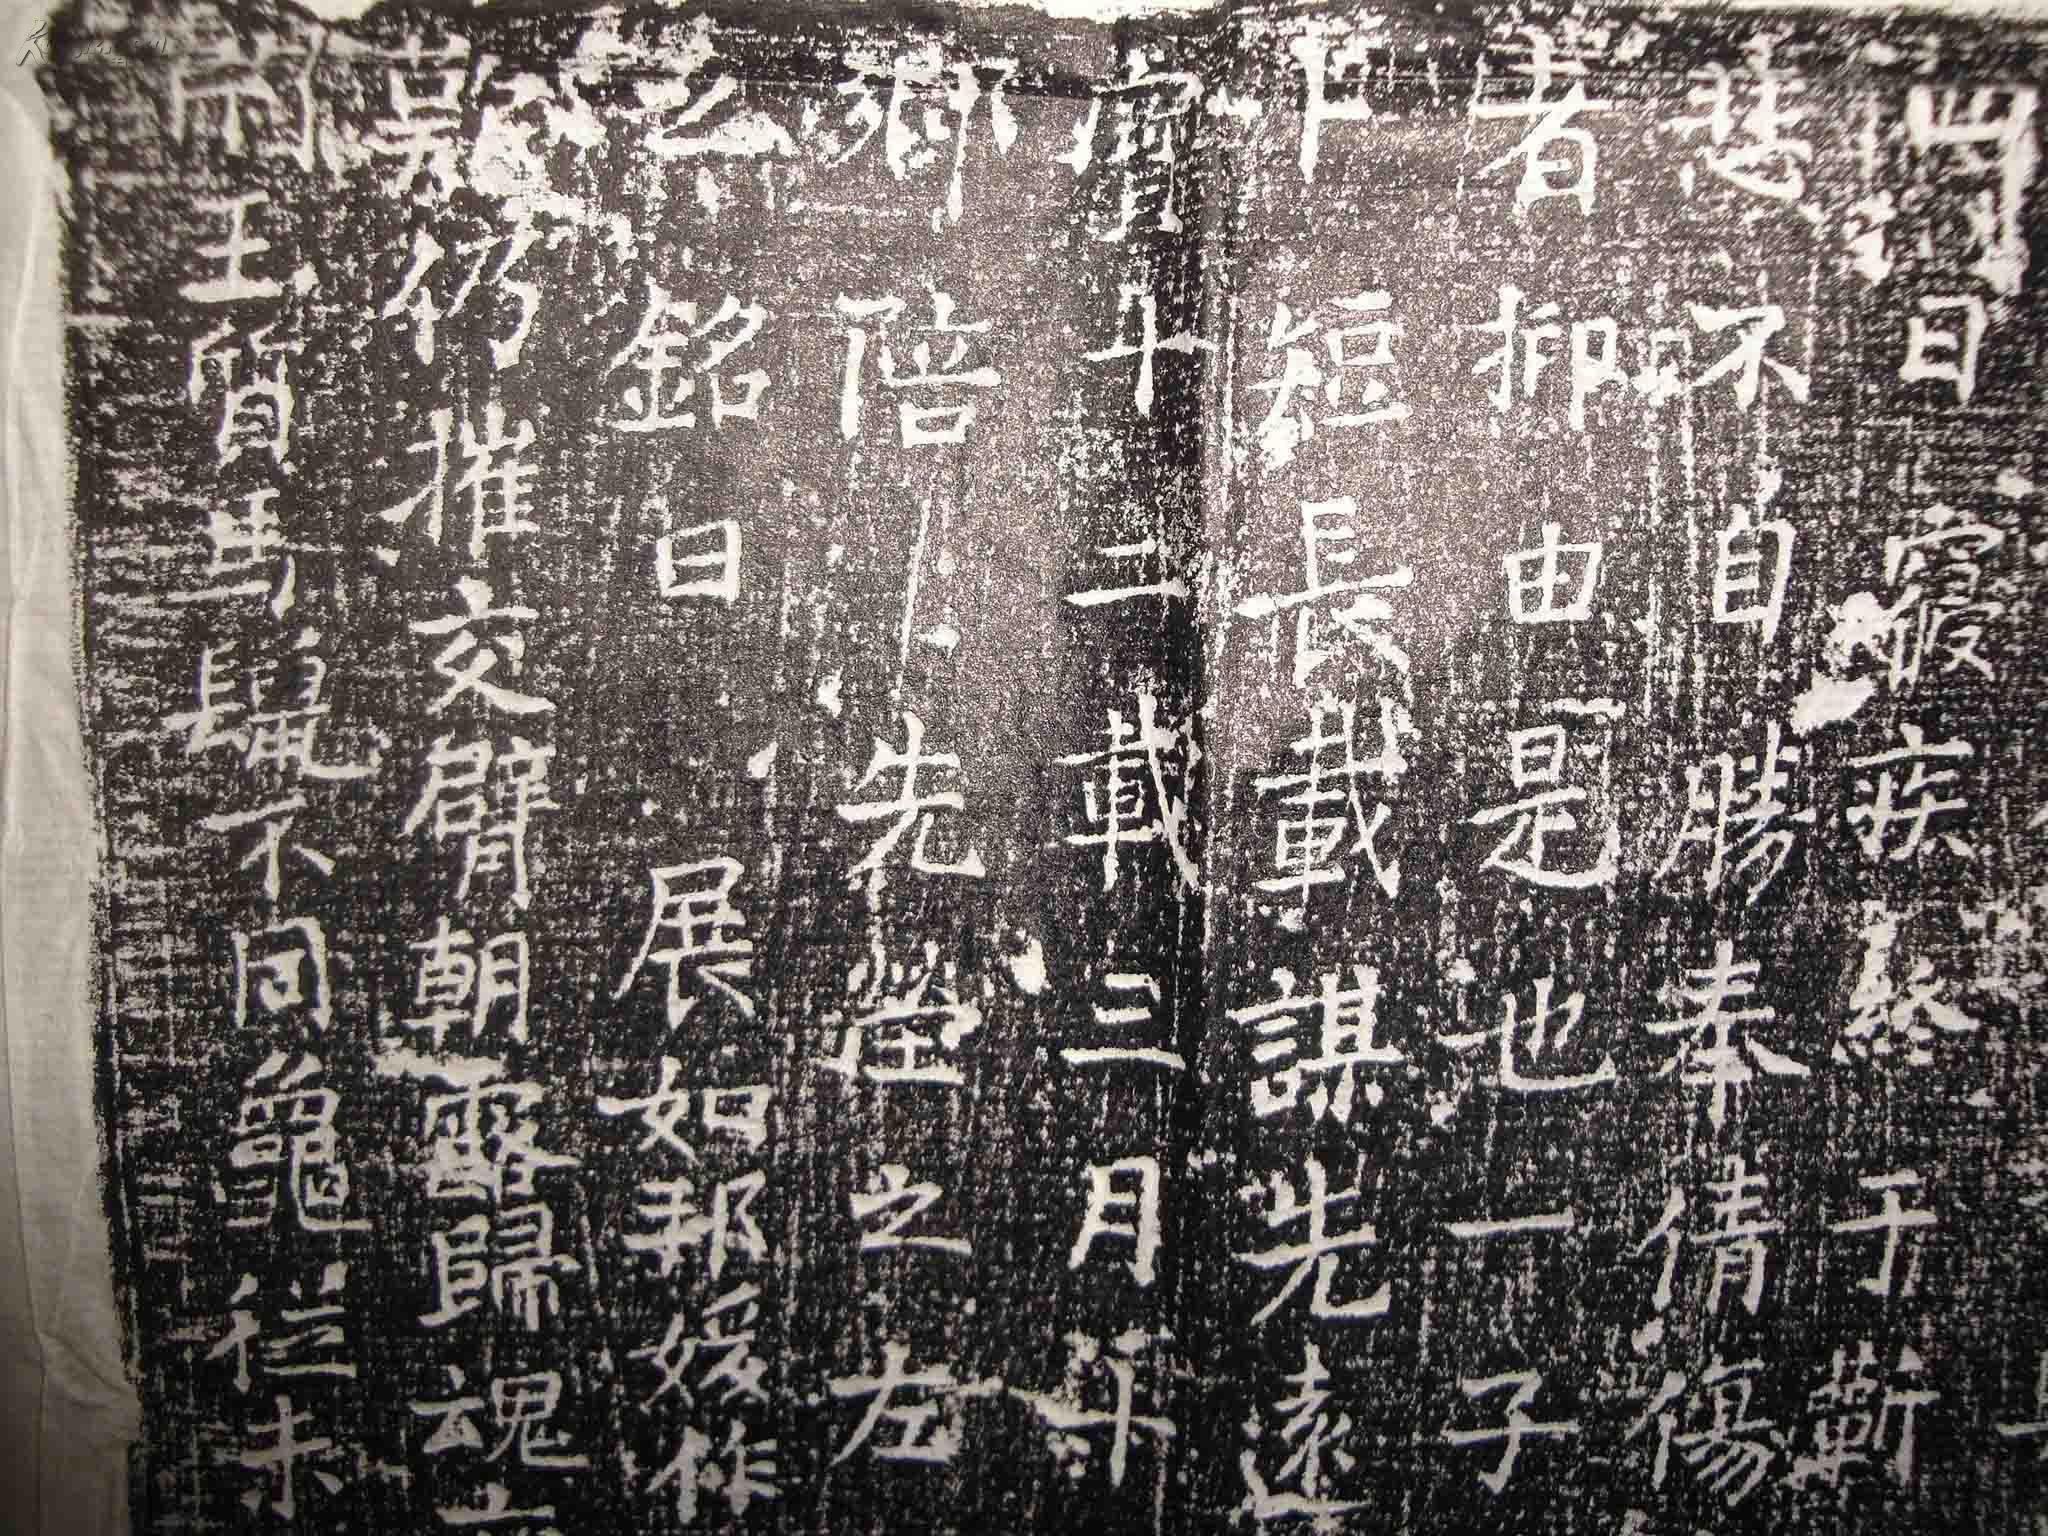 日寢疾終于蘄
悲不自勝奉倩傷
者抑由是也一子
短長載謀先遠
寅十二載三月十
鄉陪先塋之左
之銘曰展如邦媛作
仍摧交臂朝露歸魂
王質不同龜從未